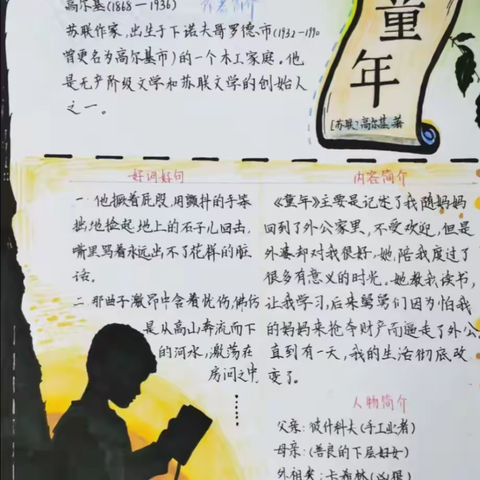 高尔基(1868-1936)
作者简介
苏联作家,出生于下诺夫哥罗德市(1932-1990
曾更名为高尔基市)的一个木工家庭。他
是无产阶级文学和苏联文学的创始人
之一。
童年
[苏联]高尔基 著
好词好句
一 他撅着屁股,用颤抖的手笨
拙地捡起地上的石子儿回击,
嘴里骂着永远出不了花样的脏
话。
二 那曲子激昂中含着忧伤,佛仿
是从高山奔流而下
的河水,激荡在
房间之中
……
内容简介
《童年》主要是记述了我随妈妈
回到了外公家里,不受欢迎,但是
外婆却对我很好,她,陪我度过了
很多有意义的时光。她教我读书,
让我学习,后来舅舅们因为怕我
的妈妈来抢夺财产而逼走了外公
直到有一天,我的生活彻底改
变了。
人物简介
父亲:彼什科夫(手工业者)
母亲:(善良的下层妇女)
外祖父:卡希林(凶狠)